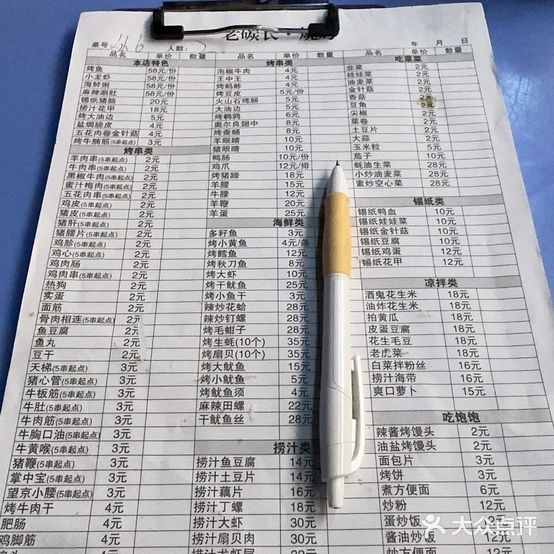 桌号
人数
年 月 日
品名 单价 数量 品名 单价 数量 品名 单价 数量
本店特色
烤鱼 58元/份
小龙虾 58元/份
海鲜粥 58元/份
麻辣涮肚 58元/份
锡纸猪脑 20元
捞汁花甲 18元
烤大油边 5元
盐焗脆皮 4元
五花肉卷金针菇 4元
烤牛腩筋(5串起点) 3元
烤串类
羊肉串(5串起点) 2元
牛肉串(5串起点) 2元
黑椒牛肉(5串起点) 2元
蜜汁梅肉(5串起点) 2元
五花肉串(5串起点) 2元
鸡皮(5串起点) 2元
猪皮(5串起点) 2元
猪肝(5串起点) 2元
猪腰片(5串起点) 2元
鸡胗(5串起点) 2元
鸡心(5串起点) 2元
鸡肉肠 2元
鸡肉串(5串起点) 2元
热狗 2元
实蛋 2元
面筋 2元
骨肉相连(5串起点) 2元
鱼豆腐 2元
鱼丸 2元
豆干 2元
天梯(5串起点) 3元
猪心管(5串起点) 3元
牛板筋(5串起点) 3元
牛肚(5串起点) 3元
牛肉筋(5串起点) 3元
牛胸口油(5串起点) 3元
牛黄喉(5串起点) 3元
猪鞭(5串起点) 3元
掌中宝(5串起点) 3元
望京小腰(5串起点) 3元
烤牛肉干 4元
肥肠 4元
鸡脚筋 4元
烤串类
泡椒牛肉 4元
王中王 4元
烤蚂蚱 4元
烤豆皮 5元/份
火山石烤肠 5元
大油边 5元
烤鹌鹑 6元
奥尔良翅中 8元
烤蚕蛹 8元
羊眼睛 10元
猪眼睛 10元
鸭肠 10元/份
鸡爪 12元/排
烤猪蹄 18元
羊腰 15元
牛腰 12元
羊鞭 20元
羊蛋 25元
海鲜类
多籽鱼 3元
烤小黄鱼 4元/条
烤鳕鱼 12元
烤秋刀鱼 8元
烤大虾 10元
烤干鱿鱼 25元
烤小鱼干 3元
辣炒花蛤 28元
辣炒钉螺 28元
烤毛蚶子 28元
烤生蚝(10个) 35元
烤扇贝(10个) 35元
烤大鱿鱼 15元
烤小鱿鱼 5元
烤鱿鱼须 4元
麻辣田螺 22元
干鱿鱼丝 28元
捞汁类
捞汁鱼豆腐 14元
捞汁土豆片 14元
捞汁藕片 16元
捞汁丁螺 18元
捞汁大虾 30元
捞汁扇贝肉 30元
吃菜菜
韭菜 2元
娃娃菜 2元
油麦菜 2元
金针菇 2元
香菇 2元
豆角 2元
尖椒 2元
菜卷 2元
土豆片 2元
大蒜 2元
玉米粒 5元
茄子 10元
蚝油生菜 18元
小炒油麦菜 18元
素炒空心菜 18元
锡纸类
锡纸鸭血 10元
锡纸娃娃菜 10元
锡纸金针菇 10元
锡纸豆腐 10元
锡纸鸡蛋 12元
锡纸花甲 12元
凉拌类
酒鬼花生米 18元
油炸花生米 18元
拍黄瓜 18元
皮蛋豆腐 18元
花生毛豆 18元
老虎菜 18元
白菜拌粉丝 16元
捞汁海带 16元
爽口萝卜 15元
吃饱饱
辣酱烤馒头 2元
油盐烤馒头 2元
面包片 3元
烤饼 3元
煮方便面 6元
炒粉 12元
蛋炒饭
酱油炒饭
炒方便面
大众点评